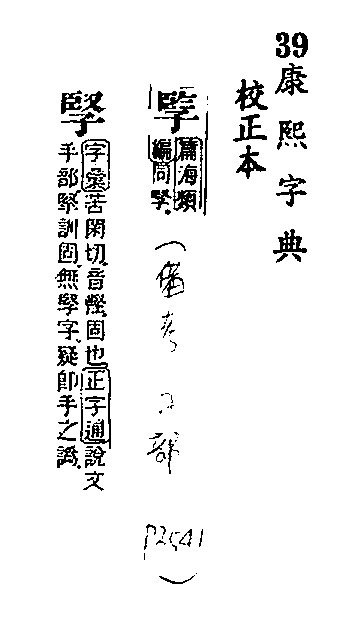 39康熙字典
校正本
篇海類
編同孯
(備考 子部 P2541)
孯
字彙苦閑切音慳固也正字通說文
手部掔訓固無孯字疑卽手之譌